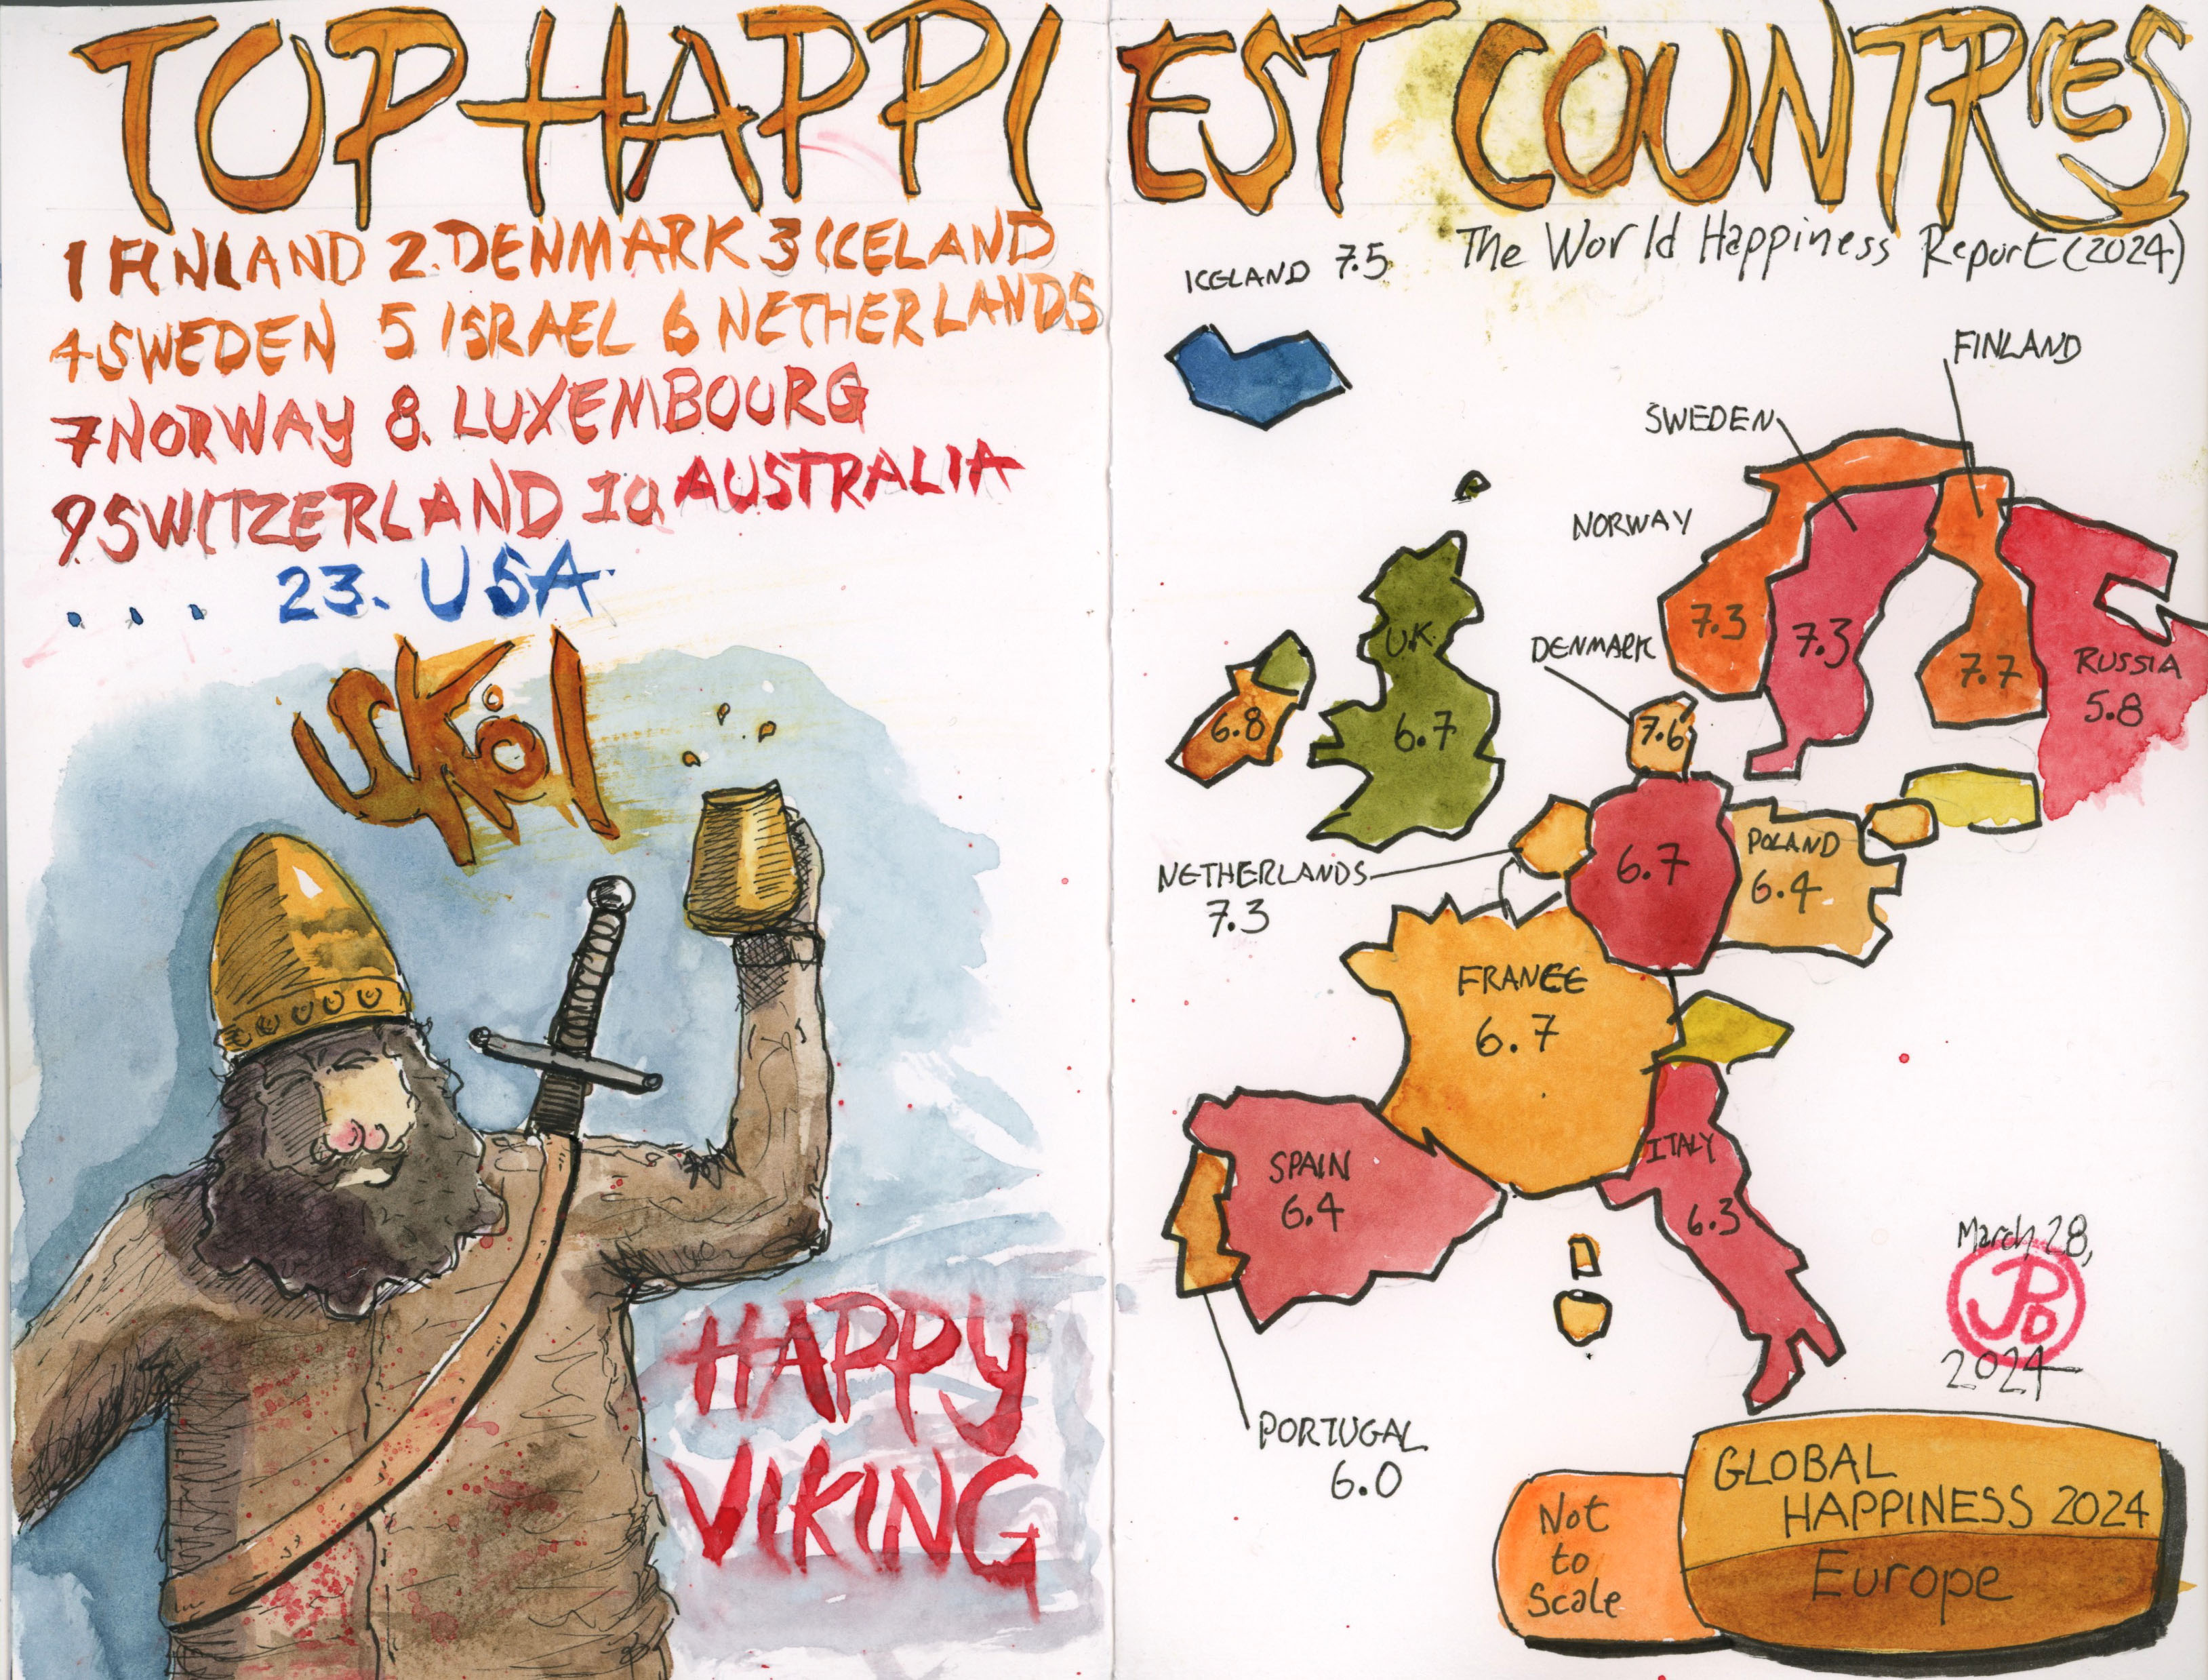 TOP HAPPIEST COUNTRIES
1 FINLAND 2. DENMARK 3 ICELAND
4 SWEDEN 5 ISRAEL 6 NETHERLANDS
7 NORWAY 8. LUXEMBOURG
9 SWITZERLAND 10 AUSTRALIA
... 23. USA
SKöl
HAPPY
VIKING
The World Happiness Report (2024)
ICELAND 7.5
FINLAND
SWEDEN
NORWAY
7.3
7.3
7.7
RUSSIA
5.8
UK
6.7
6.8
DENMARK
7.6
NETHERLANDS
7.3
6.7
POLAND
6.4
FRANCE
6.7
SPAIN
6.4
ITALY
6.3
PORTUGAL
6.0
March 28,
JPD
2024
Not
to
Scale
GLOBAL
HAPPINESS 2024
Europe